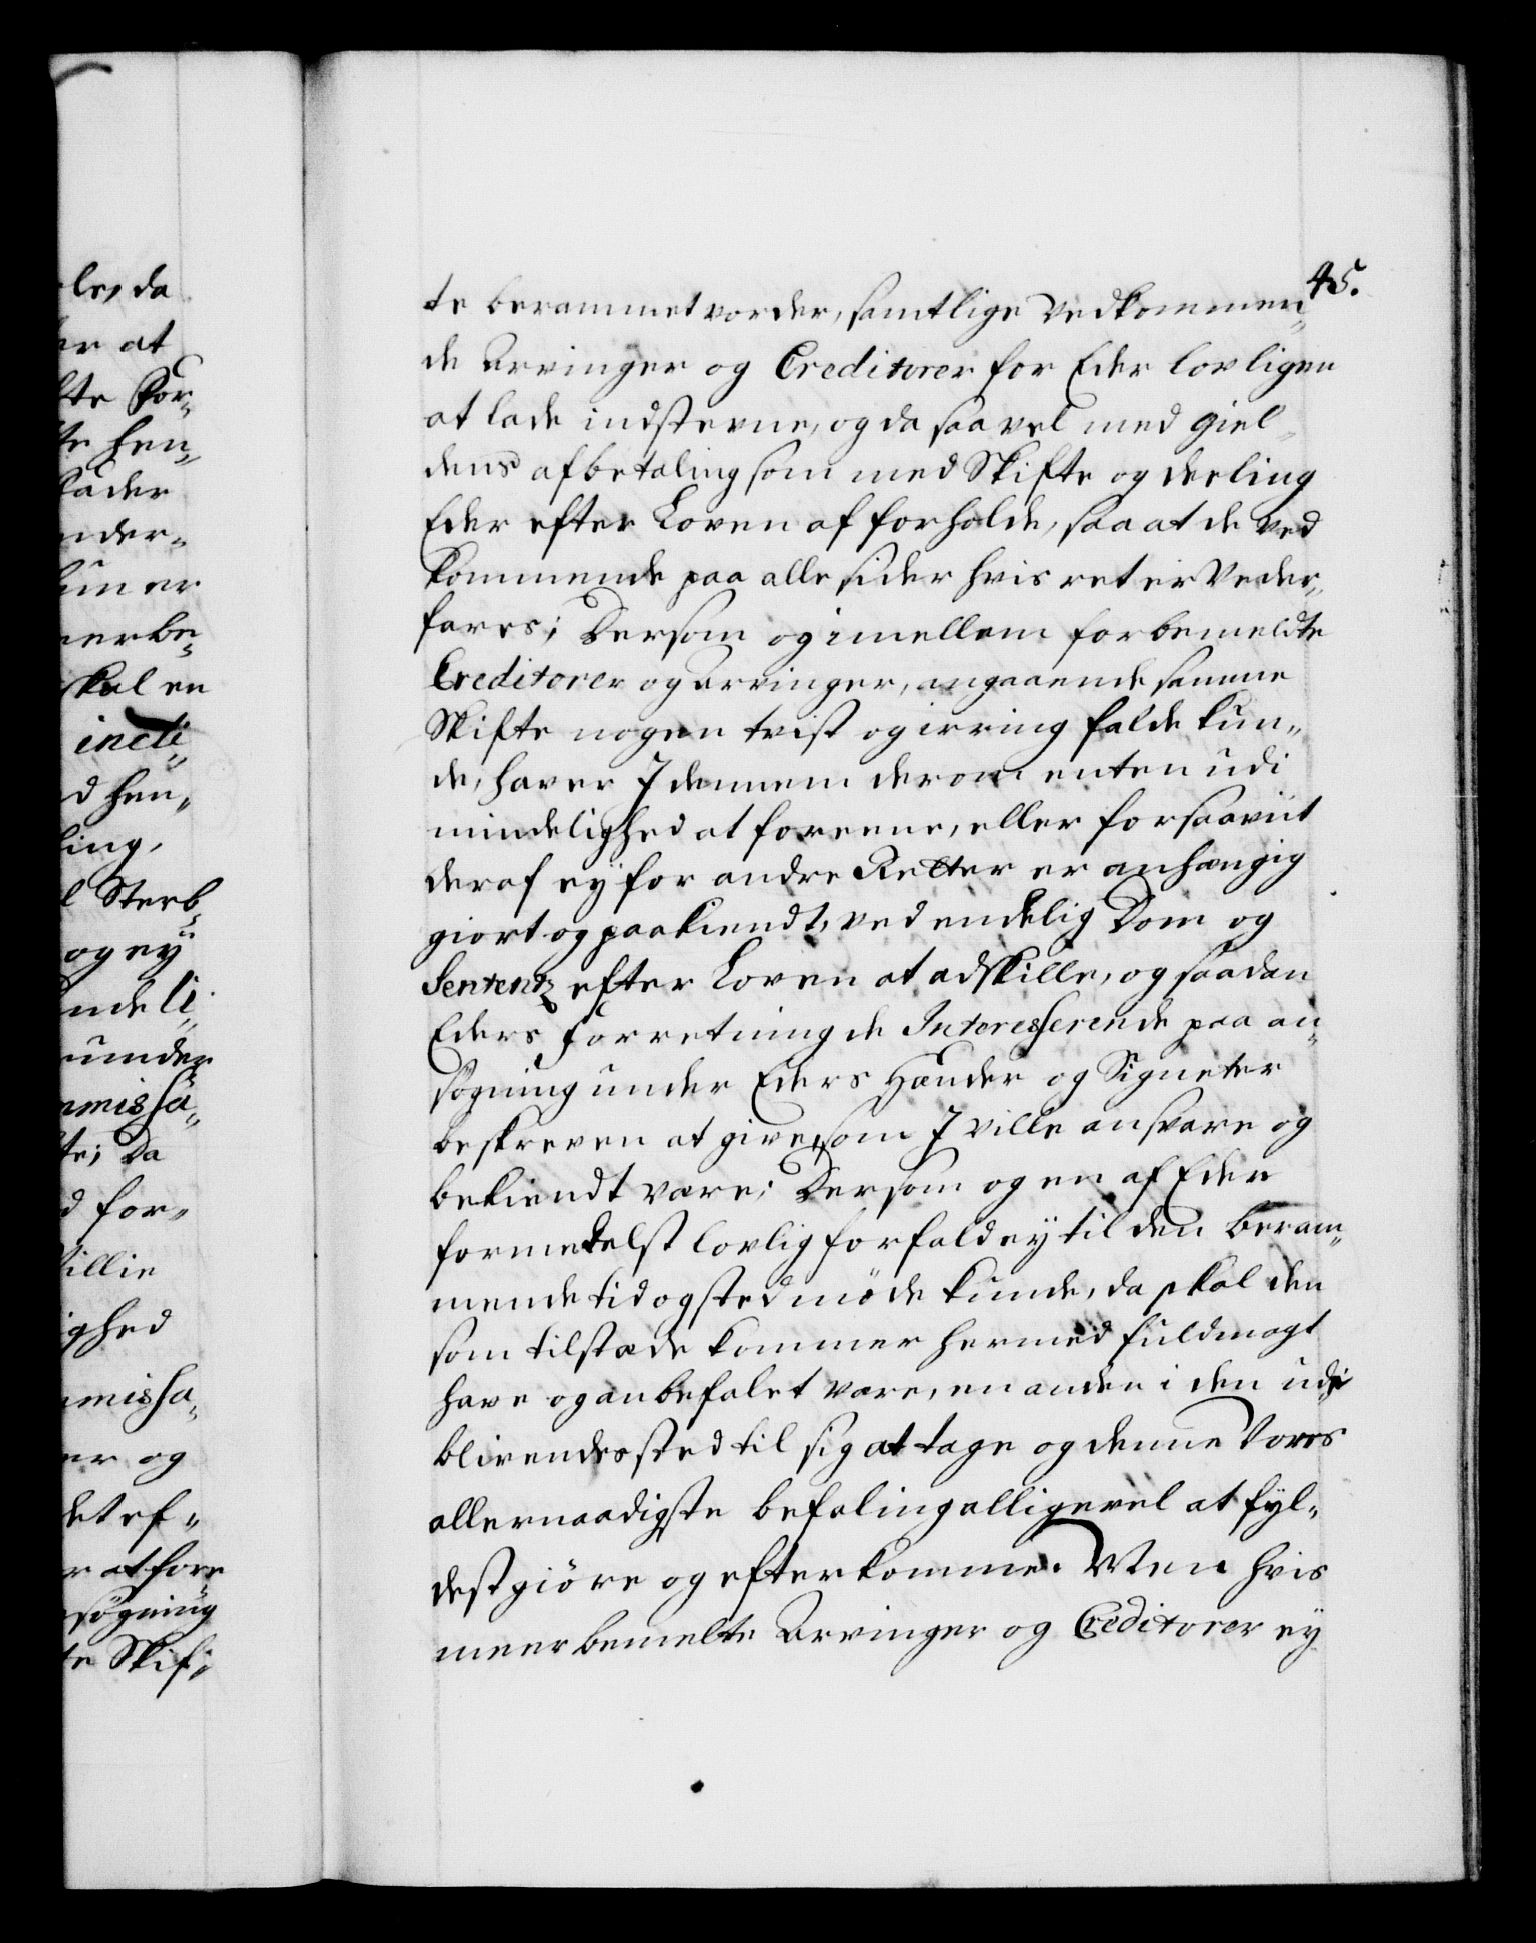 45.
te berammet vorder, samtlige Vedkommen„
de Arvinger og Creditorer for Eder lovligen
at lade indstevne, og da saavel med giel„
dens afbetaling som med Skifte og deeling
Eder efter Loven at forholde, saa at de Ved
kommende paa alle sider hvis ret er Veder„
fares; Dersom og imellem forbemeldte
Creditorer og Arvinger, angaaende samme
Skifte nogen tvist og irring falde kun„
de, haver I dennem derom enten udi
mindelighed at foreene, eller forsaavit
deraf ey for andre Retter er anhængig
giort og paakiendt, ved endelig Dom og
Sententz efter Loven at adskille, og saadan
Eders Forretning de Interesserende paa an„
søgning under Eders Hænder og Signeter
beskreven at give, som I ville ansvare og
bekiendt være; Dersom og en af Eder
formedelst lovlig forfald ey til den beram„
mende tid og sted møde kunde, da skal den
som tilstæde kommer hermed fuldmagt
have og anbefalet være, en anden i den ude
blivendes sted til sig at tage og denne Vores
allernaadigste befaling alligevel at fyl„
destgiöre og efterkomme. Men hvis
meerbemelte Arvinger og Creditorer ey
le, da
er at
te For„
te hen„
lader
nder„
un er
erbe„
skal en
incti„
d hen„
ling,
l Sterb„
og ey
nde li„
under
missa„
te; Da
d for„
villie
ighed
missa„
er og
det ef„
r at fore
søgning
te Skif„